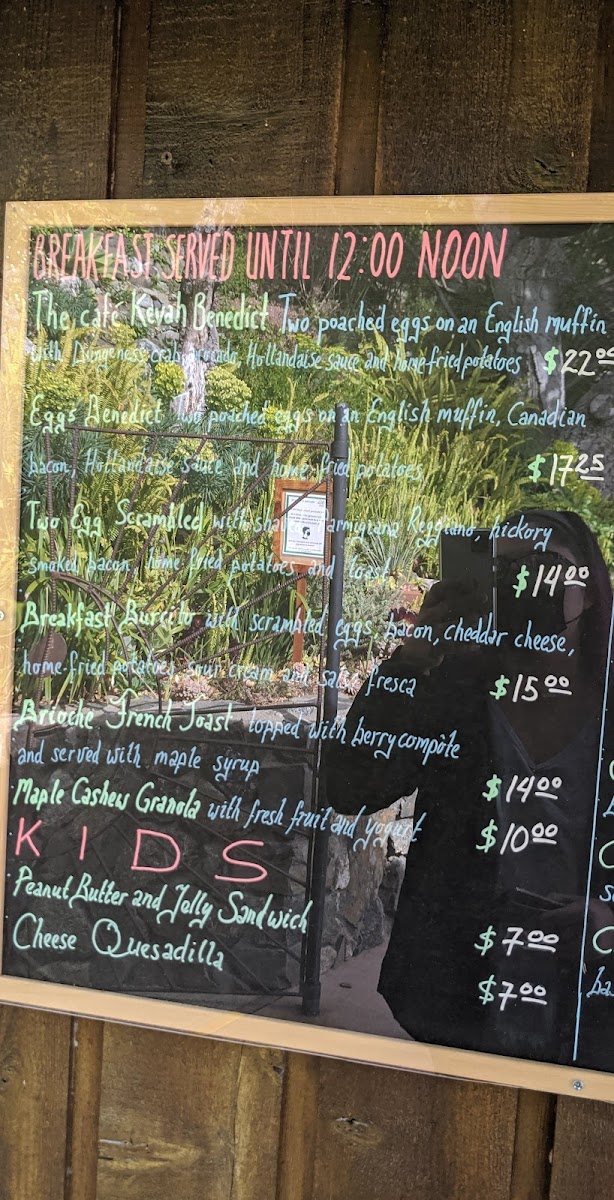 BREAKFAST SERVED UNTIL 12:00 NOON
The café Kevah Benedict Two poached eggs on an English muffin
with Dungeness crab, avocado, Hollandaise sauce and home fried potatoes $22.00
Eggs Benedict Two poached eggs on an English muffin, Canadian
bacon, Hollandaise sauce and home-fried potatoes $17.25
Two Egg Scrambled with Parmigiano Reggiano, hickory
smoked bacon, home fried potatoes and toast $14.00
Breakfast Burrito with scrambled eggs, bacon, cheddar cheese,
home-fried potatoes, sour cream and salsa fresca $15.00
Brioche French Toast topped with berry compôte
and served with maple syrup $14.00
Maple Cashew Granola with fresh fruit and yogurt $10.00
KIDS
Peanut Butter and Jelly Sandwich $7.00
Cheese Quesadilla $7.00